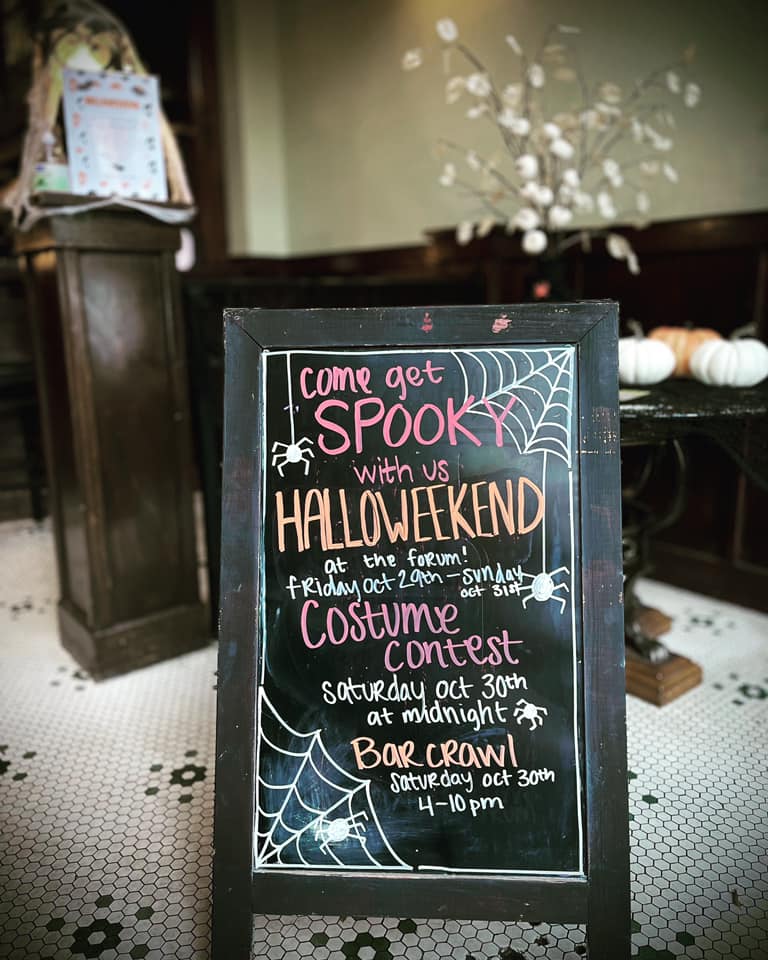 come get
SPOOKY
with us
HALLOWEEKEND
at the forum!
friday oct 29th - sunday
oct 31st
Costume
contest
saturday oct 30th
at midnight
Bar crawl
saturday oct 30th
4-10 pm